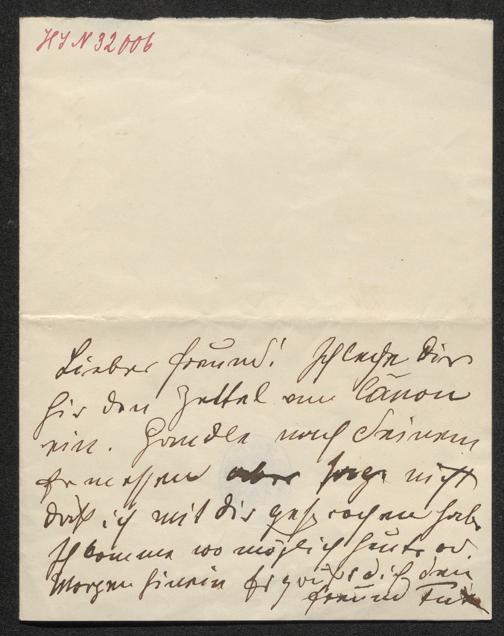 HJN 32006
Lieber Freund! Ich lege Dir
hir den Zettel an Canon
ein. Handle nach Deinem
Ermessen aber sage nicht
daß ich mit dir gesprochen habe
Ich komme wo möglich heute od.
Morgen hinein Es grüßt dich dein
Freund